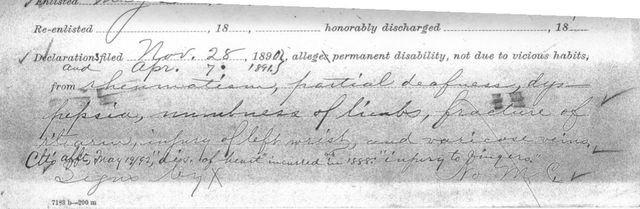 Enlisted
Re-enlisted , 18 , honorably discharged , 18
Declarations filed Nov. 28, 1890, alleges permanent disability, not due to vicious habits,
and Apr. 7. 1891.
from rheumatism, partial deafness, dys-
pepsia, numbness of limbs, fracture of
injury of left wrist, and varicose veins.
Clts afft, May 19/92, "dis. of heart incurred in 1888." "injury to fingers."
Signs by X No M. C.
7183 b—200 m